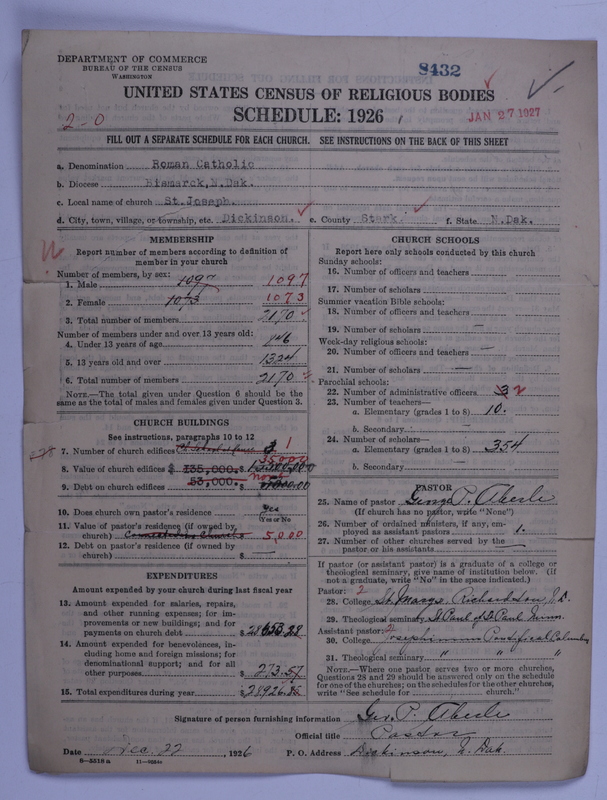 DEPARTMENT OF COMMERCE
BUREAU OF THE CENSUS
WASHINGTON
8432
UNITED STATES CENSUS OF RELIGIOUS BODIES
SCHEDULE: 1926
JAN 27 1927
2-0
FILL OUT A SEPARATE SCHEDULE FOR EACH CHURCH. SEE INSTRUCTIONS ON THE BACK OF THIS SHEET
a. Denomination Roman Catholic
b. Diocese Bismarck, N.Dak.
c. Local name of church St. Joseph.
d. City, town, village, or township, etc. Dickinson. e. County Stark. f. State N.Dak.
MEMBERSHIP
Report number of members according to definition of
member in your church
Number of members, by sex:
1. Male 1097 1097
2. Female 1073 1073
3. Total number of members 2170
Number of members under and over 13 years old:
4. Under 13 years of age
5. 13 years old and over 1324
6. Total number of members 2170
NOTE.—The total given under Question 6 should be the
same as the total of males and females given under Question 3.
CHURCH BUILDINGS
See instructions, paragraphs 10 to 12
7. Number of church edifices 1
8. Value of church edifices $ 135,000.
9. Debt on church edifices 53,000. none
10. Does church own pastor's residence yes
(Yes or No)
11. Value of pastor's residence (if owned by
church) $ 5000
12. Debt on pastor's residence (if owned by
church) $ —
EXPENDITURES
Amount expended by your church during last fiscal year
13. Amount expended for salaries, repairs,
and other running expenses; for im-
provements or new buildings; and for
payments on church debt $ 28653.28
14. Amount expended for benevolences, in-
cluding home and foreign missions; for
denominational support; and for all
other purposes $ 273.57
15. Total expenditures during year $ 28926.85
CHURCH SCHOOLS
Report here only schools conducted by this church
Sunday schools:
16. Number of officers and teachers
17. Number of scholars —
Summer vacation Bible schools:
18. Number of officers and teachers
19. Number of scholars —
Week-day religious schools:
20. Number of officers and teachers —
21. Number of scholars —
Parochial schools:
22. Number of administrative officers 3 2
23. Number of teachers—
a. Elementary (grades 1 to 8) 10.
b. Secondary —
24. Number of scholars—
a. Elementary (grades 1 to 8) 354
b. Secondary —
PASTOR
25. Name of pastor George P. Aberle
(If church has no pastor, write "None")
26. Number of ordained ministers, if any, em-
ployed as assistant pastors 1.
27. Number of other churches served by the
pastor or his assistants —
If pastor (or assistant pastor) is a graduate of a college or
theological seminary, give name of institution below. (If
not a graduate, write "No" in the space indicated.)
Pastor: 2
28. College St. Marys. Richardton N.D.
29. Theological seminary St. Paul of St. Paul Minn.
Assistant pastor: 2
30. College Josephinum Pontifical Columbus
31. Theological seminary " " "
NOTE.—Where one pastor serves two or more churches,
Questions 28 and 29 should be answered only on the schedule
for one of the churches; on the schedules for the other churches,
write "See schedule for church."
Signature of person furnishing information Geo. P. Aberle
Official title Pastor
Date Dec. 22, 1926 P. O. Address Dickinson, N. Dak.
8—5318 a